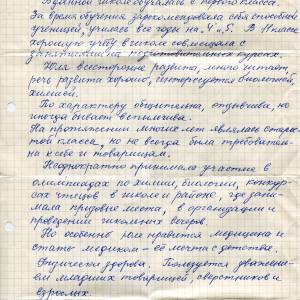 В данной школе обучалась с первого класса.
За время обучения зарекомендовала себя способной
ученицей, училась все годы на „4" и „5". В 11 классе
хорошую учёбу в школе совмещала с
занятиями на подготовительных курсах.
Юля всесторонне развита, много читает,
речь развита хорошо, интересуется биологией,
химией.
По характеру общительна, отзывчива, но
иногда бывает вспыльчива.
На протяжении многих лет являлась старос-
той класса, но не всегда была требователь-
на к себе и товарищам.
Неоднократно принимала участие в
олимпиадах по химии, биологии, конкур-
сах чтецов в школе и районе, где зани-
мала призовые места, в организации и
проведении школьных вечеров.
Но особенно Юле нравится медицина и
стать медиком - её мечта с детства.
Физически здорова. Пользуется уважени-
ем младших товарищей, сверстников и
взрослых.